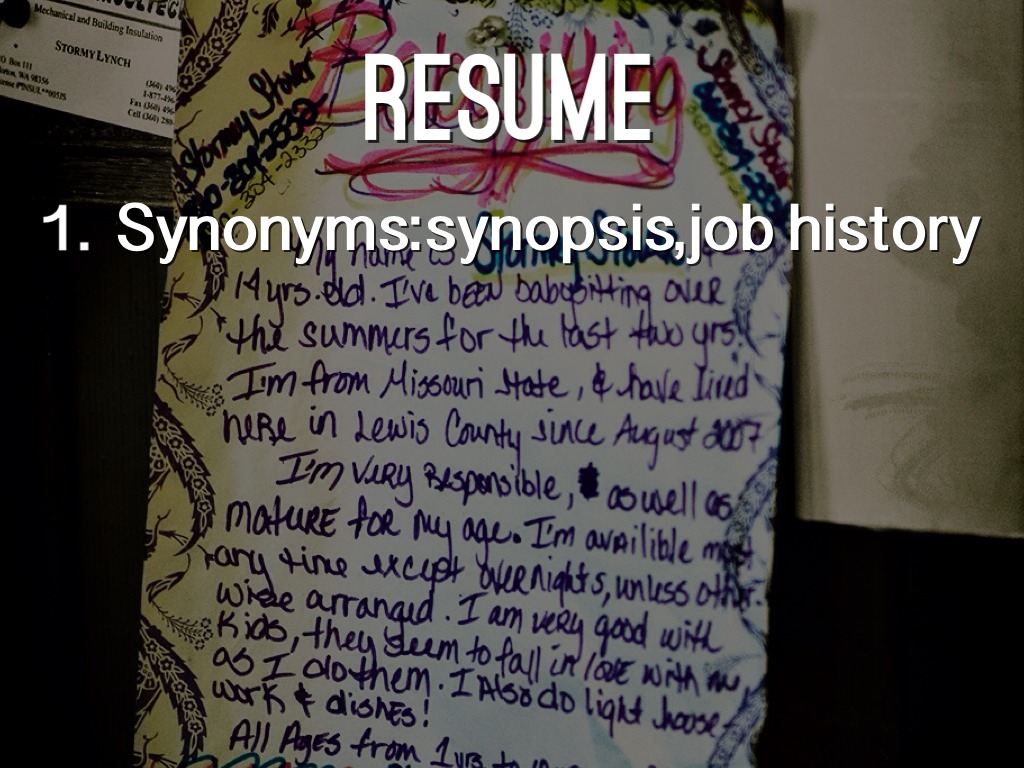 Mechanical and Building Insulation
STORMY LYNCH
RESUME
Babysitting
1. Synonyms:synopsis,job history
My name is Stormy Stover,
14 yrs. old. I've been babysitting over
the summers for the last two yrs.
I'm from Missouri State, & have lived
here in Lewis County since August 2007
I'm very Responsible, as well as
mature for my age. I'm availible most
any time except overnights, unless other-
wise arranged. I am very good with
kids, they seem to fall in love with me
as I do them. I Also do light house-
work & dishes!
All Ages from 1yrs to